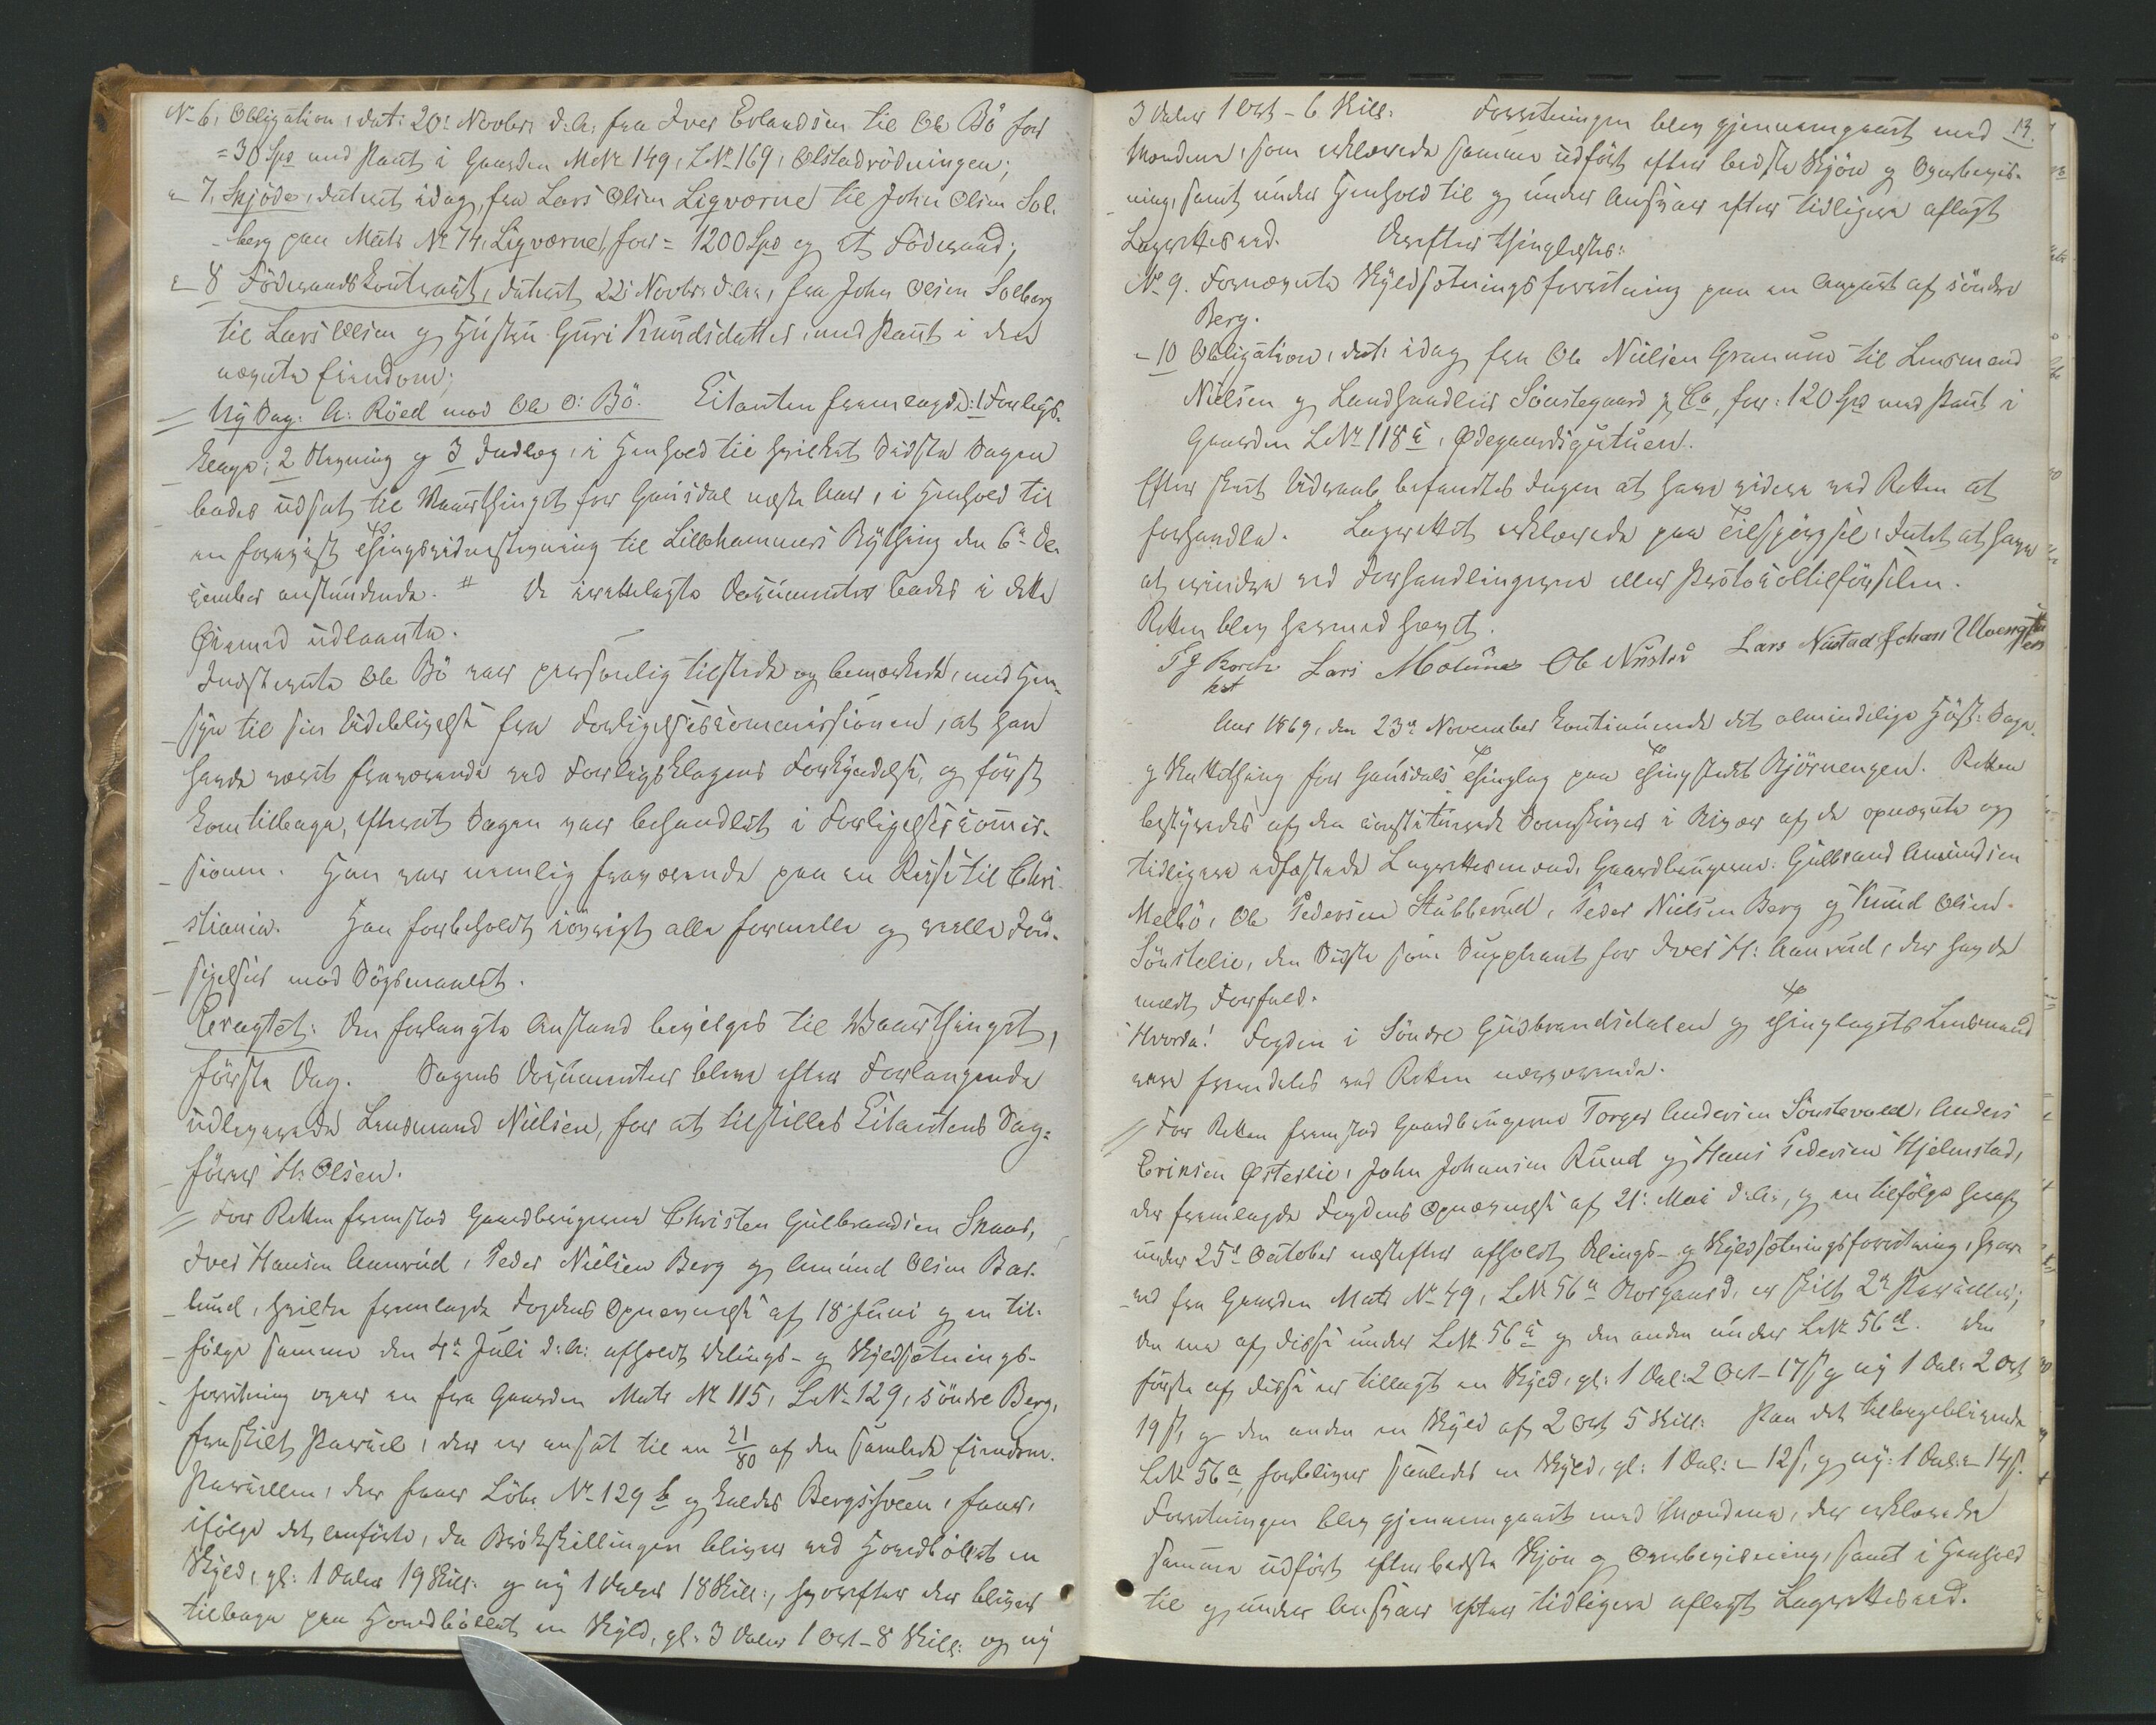 No 6, Obligation, dat: 20: Novbr: d:A: fra Iver Erlandsen til Ole Bö for
= 30 Spd med Pant i Gaarden MNr 149, LNo 169, Olstadrödningen;
" 7, Skjöde, dateret idag, fra Lars Olsen Ligværne til John Olsen Sol-
berg paa Matr No 74, Ligværne, for = 1200 Spd og et Föderaad;
" 8 Föderaadskontrakt, dateret 22: Novbr: d:A:, fra John Olsen Solberg
til Lars Olsen og Hustru Guri Knudsdatter, med Pant i den
nævnte Eiendom;
Ny Sag: A: Röed mod Ole O: Bö. Citanten fremlagde: 1 Forligs-
klage; 2 Stevning og 3 Indlæg, i Henhold til hvilket Sidste Sagen
bades udsat til Vaarthinget for Gausdal næste Aar, i Henhold til
en forevist Thingsvidnestevning til Lillehammers Bything den 6te De-
cember anstundende. # De irettelagte Documenter bades i dette
Øiemed udlaante.
Indstevnte Ole Bö var personlig tilstede og bemærkede, med Hen-
syn til sin Udeblivelse fra Forligelsescommissionen, at han
havde været fraværende ved Forligsklagens Forkyndelse, og först
kom tilbage, efterat Sagen var behandlet i Forligelsescomis-
sionen. Han var nemlig fraværende paa en Reise til Chri-
stiania. Han forbeholdt iövrigt alle formelle og reelle Ind-
sigelser mod Sögsmaalet.
Eragtet: Den forlangte Anstand bevilges til Vaarthinget,
förste Dag. Sagens Documenter bleve efter Forlangende
udleverede Lensmand Nielsen, for at tilstilles Citantens Sag-
förer H. Olsen.
For Retten fremstod Gaardbrugerne Christen Gulbrandsen Skaar,
Iver Hansen Aanrud, Peder Nielsen Berg og Amund Olsen Bae-
lund, hvilke fremlagde Fogdens Opnævnelse af 18 Juni og en til-
fölge samme den 4de Juli d:A: afholdt Delings- og Skyldsætnings-
forretning over en fra Gaarden Matr No 115, LNo 129, söndre Berg,
fraskilt Parcel, der er ansat til en 21/80 af den samlede Eiendom.
Parcellen, der faaer Löbe No 129 b og kaldes Bergshveen, faaer,
ifölge det anförte, da Brökskillingen bliver ved Hovedbölet en
Skyld, gl: 1 Daler 19 Skill: og ny 1 Daler 18 Skill:, hvorefter der bliver
tilbage paa Hovedböllet en Skyld, gl: 3 Daler 1 Ort - 8 Skill: og ny
3 Daler 1 Ort - 6 Skill: Forretningen blev gjennemgaaet med 13.
Mændene, som erklærede samme udfört efter bedste Skjön og Overbevis-
ning, samt under Henhold til og under Ansvar efter tidligere aflagt
Lagrettesed. Derefter thinglæstes:
No 9. Fornævnte Skyldsætningsforretning paa en Anpart af söndre
Berg.
- 10 Obligation, dat: idag fra Ole Nielsen Granum til Lensmand
Nielsen og Landhandler Sönstegaard & Co, for: 120 Spd med Pant i
Gaarden LNo 118 c, Ødegaardsgutuen.
Efter skeet Udraab befandtes Ingen at have videre ved Retten at
forhandle. Lagrettet erklærede paa Tilspörgsel Intet at have
at erindre ved Forhandlingerne eller Protocoltilförselen.
Retten blev hermed hævet.
T J Borch Lars Molune Ole Nustad Lars Nustad Johan Ulvengsen
kst
Aar 1869, den 23de November kontinuerede det almindelige Höst- Sage-
og Skattething for Gausdals Thinglag paa Thingstedet Björnengen. Retten
bestyredes af den constituerede Domskriver i Bivær af de opnævnte og
tidligere edfæstede Lagrettesmænd, Gaardbrugerne: Gulbrand Amundsen
Melbö, Ole Pedersen Stubberud, Peder Nielsen Berg og Knud Olsen
Sönstelie, den Sidste som Suppleant for Iver H: Aanrud, der havde
meldt Forfald.
Hvorda! Fogden i Söndre Gudbrandsdalen og Thinglagets Lensmand
vare fremdeles ved Retten nærværende.
For Retten fremstod Gaardbrugerne Torger Andersen Sönstevold, Anders
Eriksen Østerlie, John Johansen Ruud og Hans Pedersen Hjelmstad,
der fremlagde Fogdens Opnævnelse af 21: Mai d:A:, og en tilfölge heraf
under 25de October næstefter afholdt Delings- og Skyldsætningsforretning, hvor-
ved fra Gaarden Matr No 49, LNo 56 a Norgaard, er skilt 2de Parceller;
den ene af disse under LNo 56 c og den anden under LNo 56 d. Den
förste af disse er tillagt en Skyld, gl: 1 Dal: 2 Ort - 17 s og ny 1 Dal: 2 Ort
19 s, og den anden en Skyld af 2 Ort 5 Skill: Paa det tilbageblivende
LNo 56 a, forbliver saaledes en Skyld, gl: 1 Dal: " - 12 s, og ny: 1 Dal: " - 14 s.
Forretningen blev gjennemgaaet med Mændene, der erklærede
samme udfört efter bedste Skjön og Overbevisning, samt i Henhold
til og under Ansvar efter tidligere aflagt Lagrettesed.